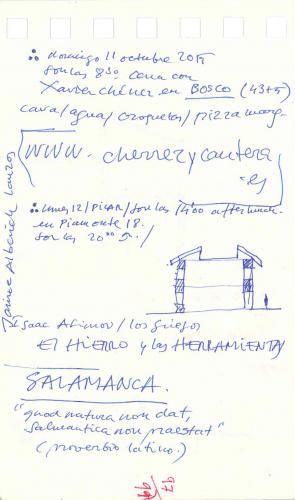 domingo 11 octubre 2015
son las 830 cena con
Xavier en BOSCO (43+5)
cava/agua/croquetas/pizza marg.
www. cherrerycantera
.es
lunes 12/PILAR/son las 14'00 afterlunch
en Piamonte 18.
son las 20'00
Isaac Asimov/los griegos
El HIERRO y las HERRAMIENTAS
SALAMANCA.
"quod natura non dat,
Salmantica non praestat"
(proverbio latino.)
97